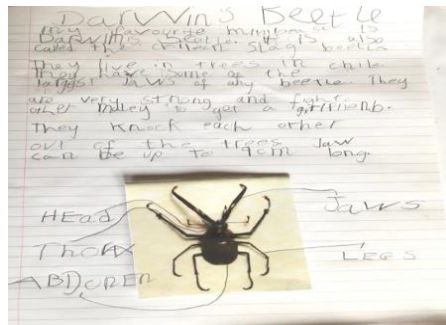 DARWIN'S BEEtLE
My favourite minibeast is
Darwin's Beetle. It is also
called the chilean Stag beetle
They live in trees in chile
They have some of the
largest Jaws of any beetle. They
are very strong and fight
other to get a girlfriend.
They knock each other
out of the trees. Jaw
can be up to 9cm long.
HEad
JAWS
Thorax
LEGS
ABDOMEN